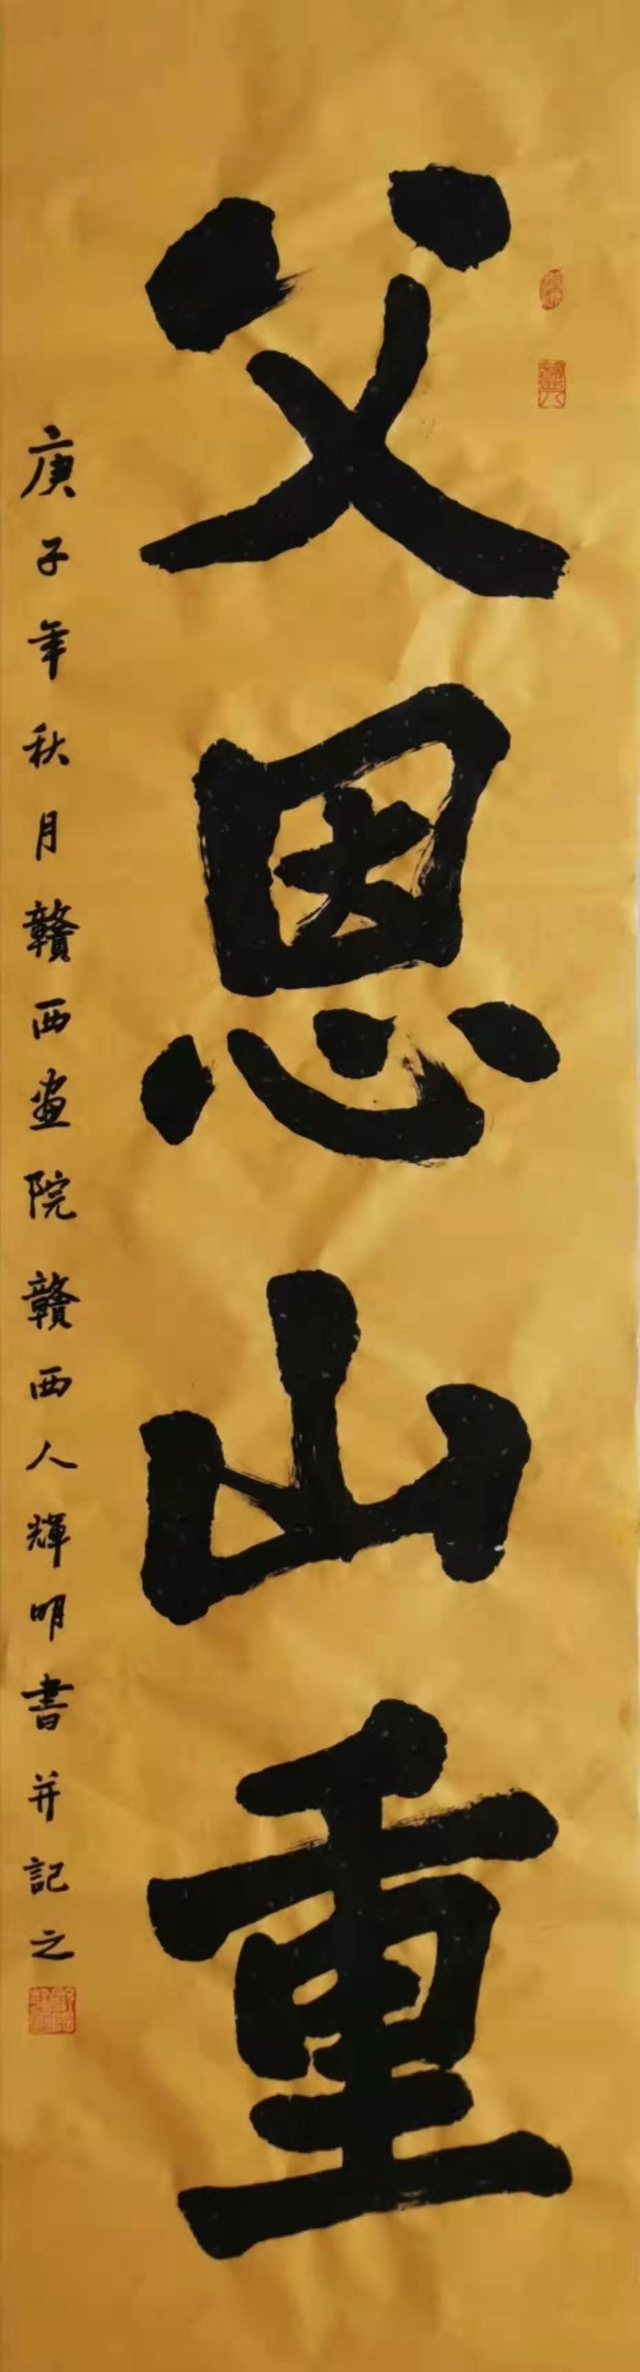 父恩山重
庚子年秋月贛西畫院贛西人輝明書并記之